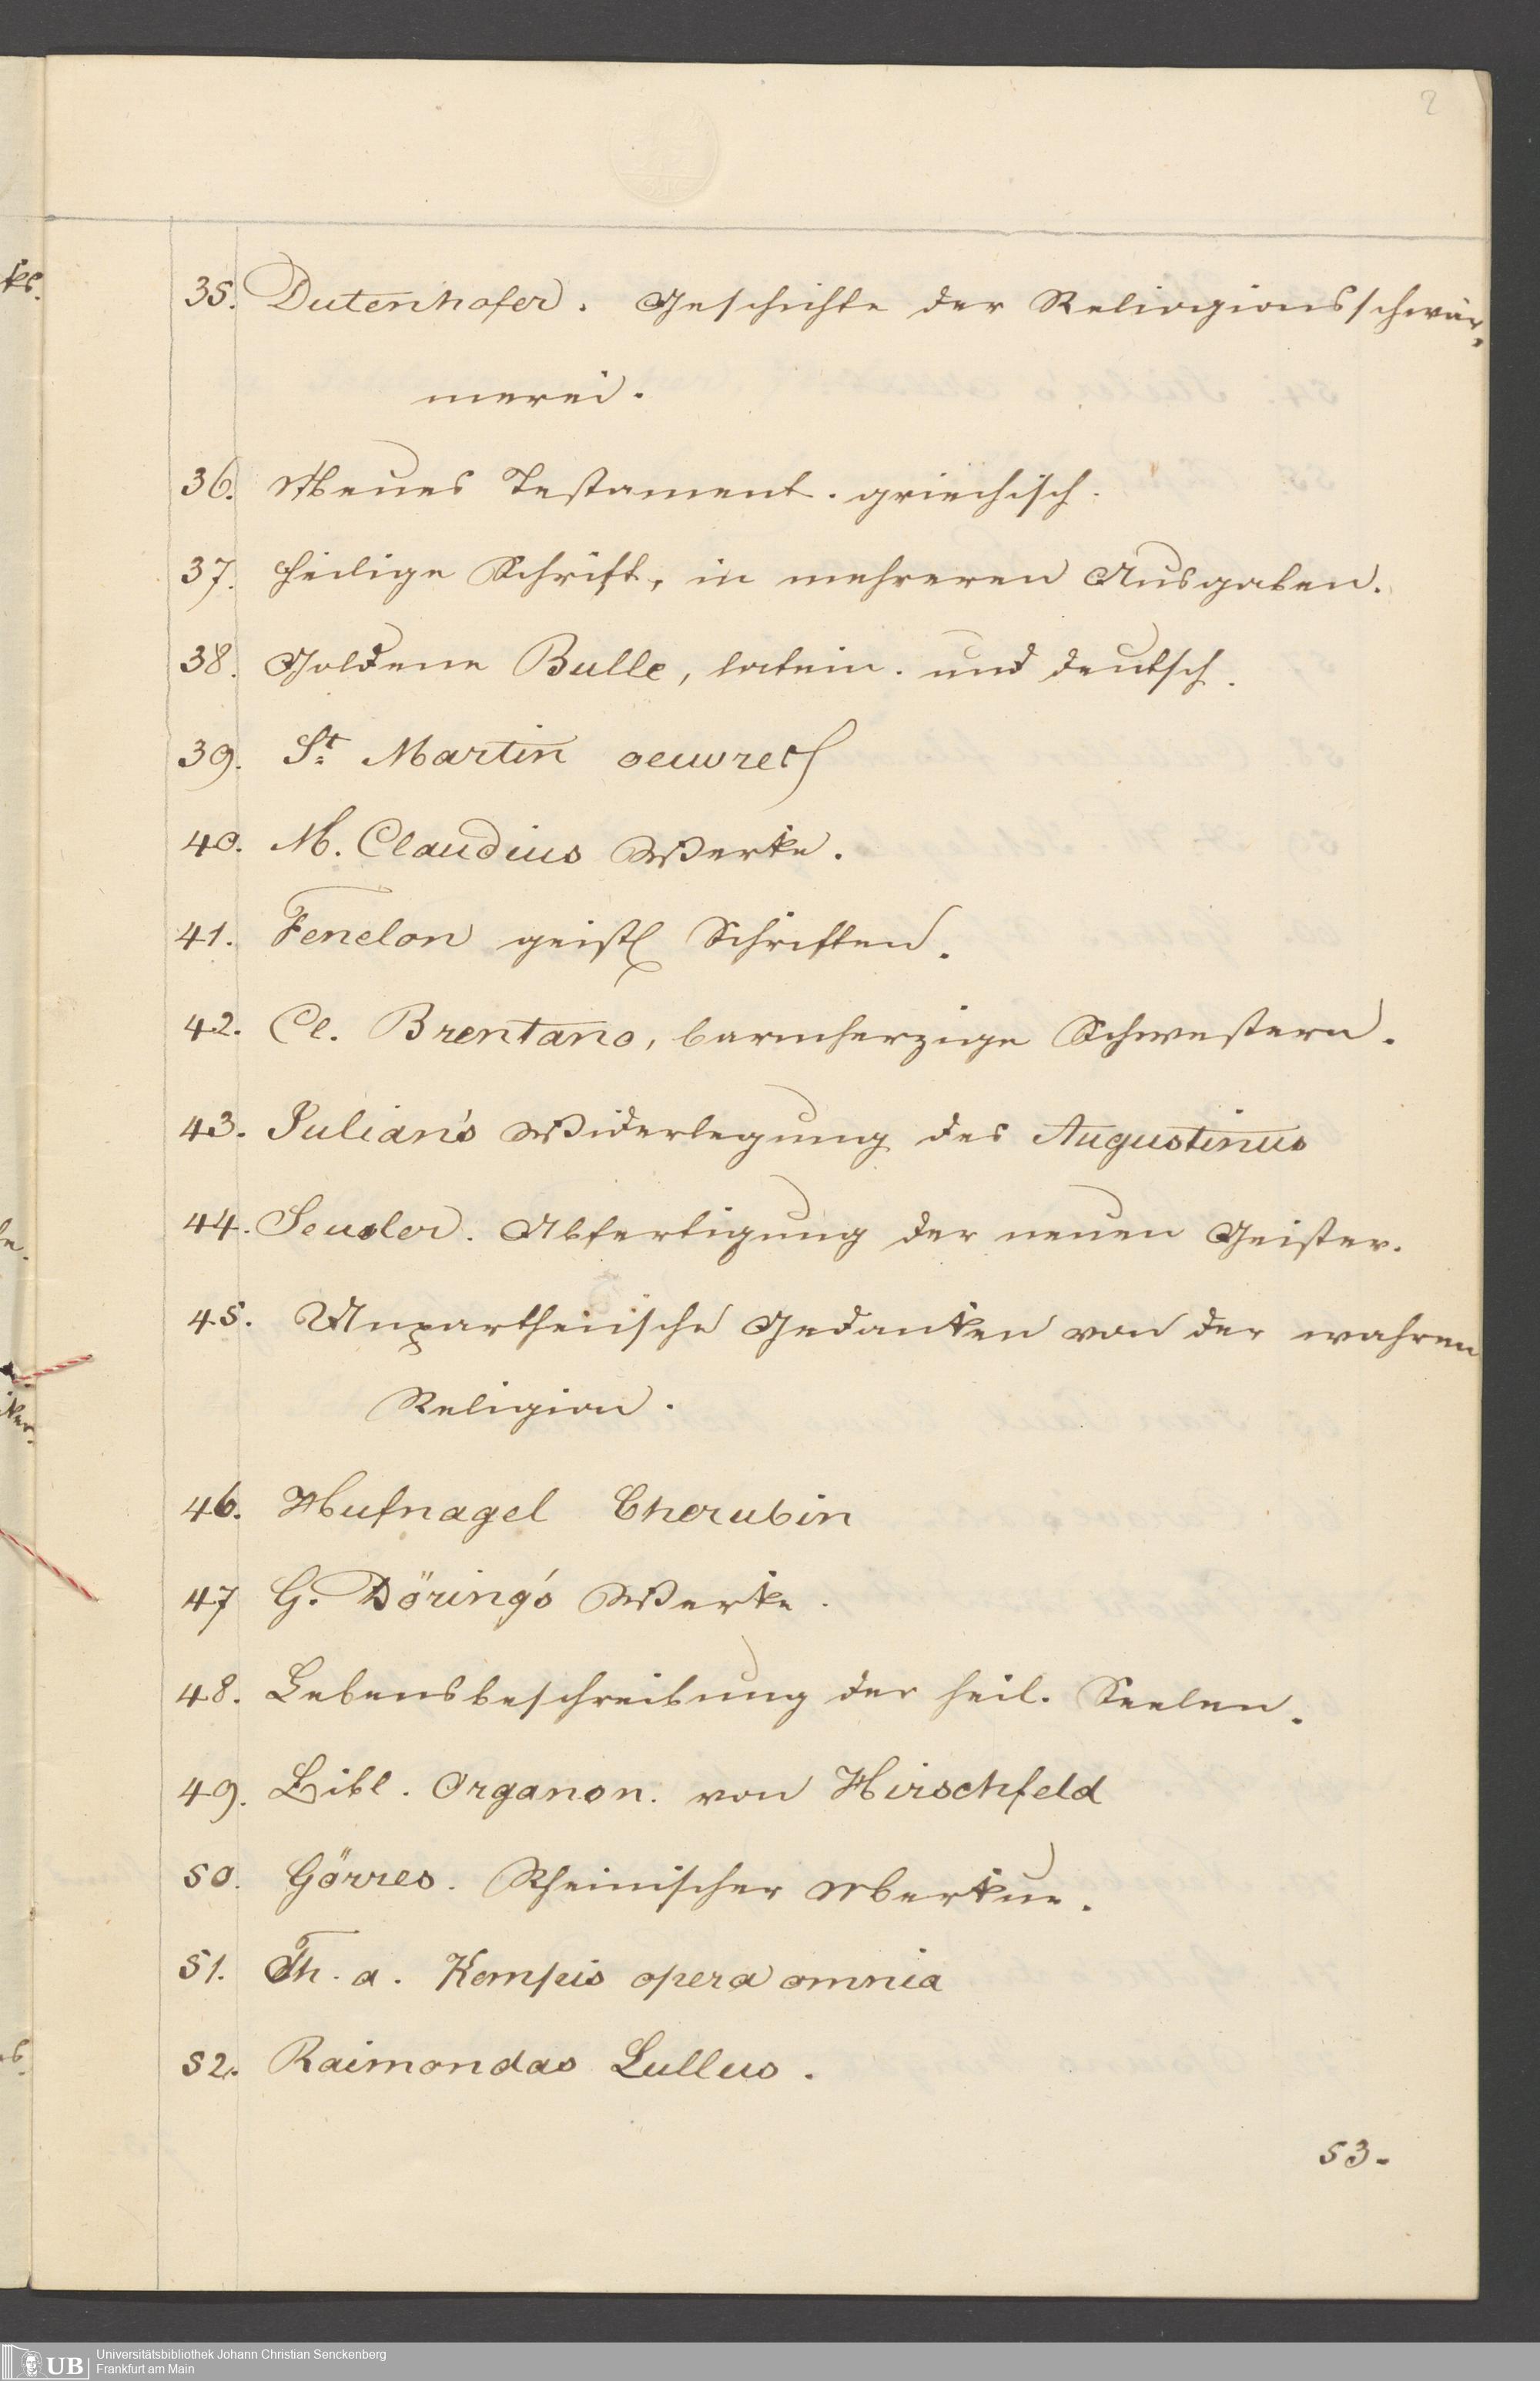 2
35. Dutenhofer. Geschichte der Religionsschwär-
merei.
36. Neues Testament. griechisch.
37. Heilige Schrift, in mehreren Ausgaben.
38. Goldene Bulle, latein. und deutsch.
39. St. Martin oeuvres
40. M. Claudius Werke.
41. Fenelon geistl Schriften.
42. Cl. Brentano, barmherzige Schwestern.
43. Julian's Widerlegung des Augustinus
44. Semler. Abfertigung der neuen Geister.
45. Unpartheiische Gedanken von der wahren
Religion.
46. Hufnagel Cherubin
47 G. Döring's Werke.
48. Lebensbeschreibung der heil. Seelen.
49. Bibl. Organon. von Hirschfeld
50. Görres. Rheinischer Merkur.
51. Th. a. Kempis opera omnia
52. Raimondas Lullus.
53.
UB
Universitätsbibliothek Johann Christian Senckenberg
Frankfurt am Main